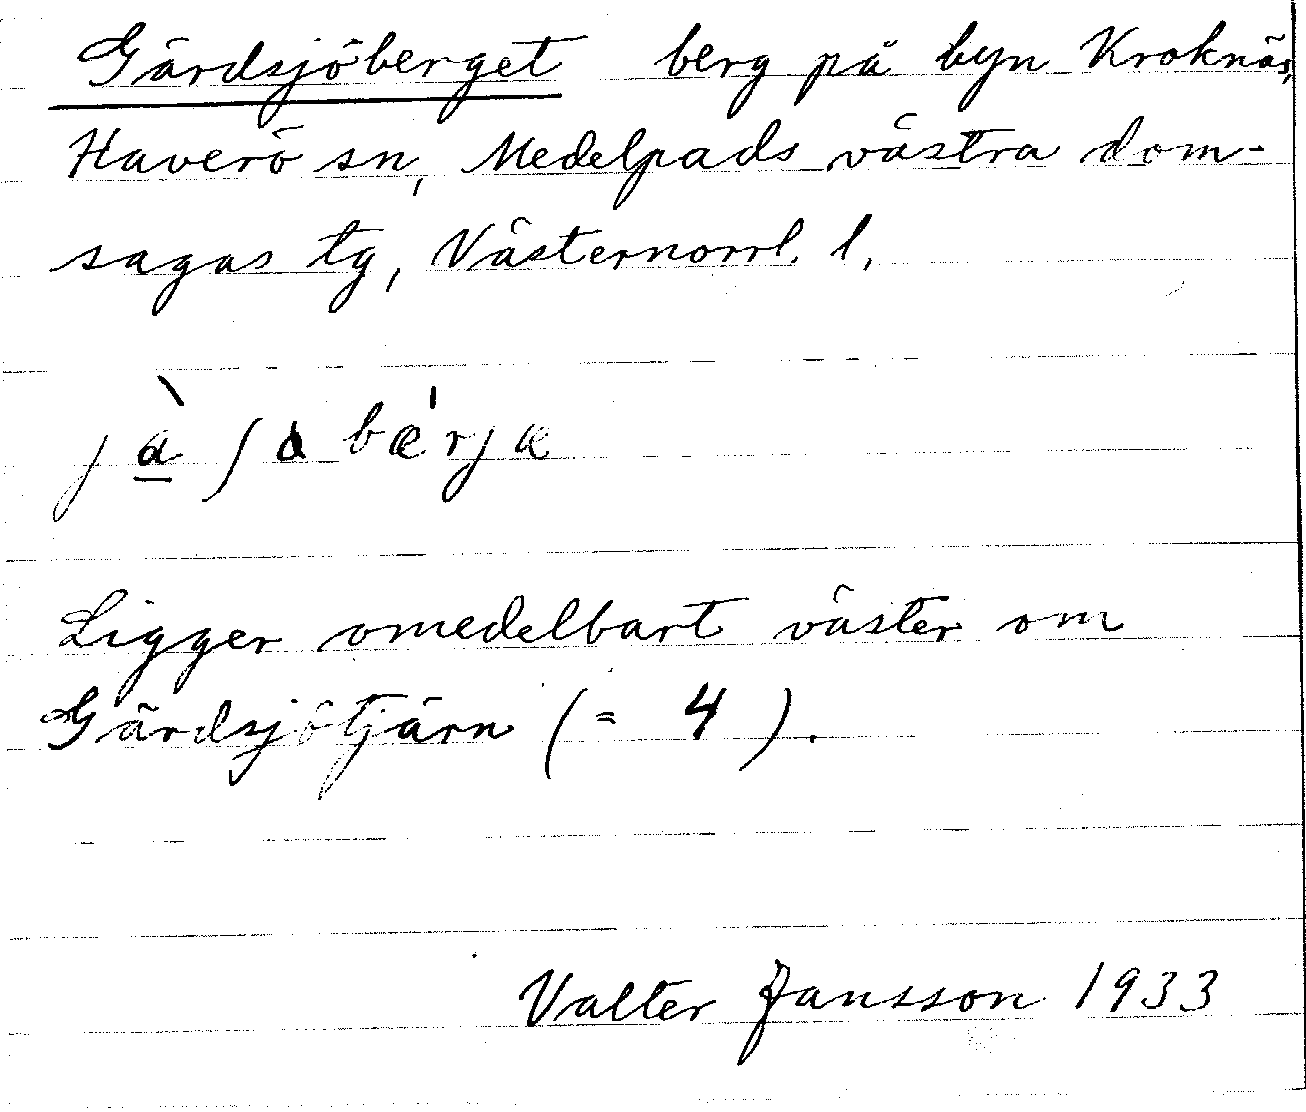 Gärdsjöberget berg på byn Kroknäs,
Haverö sn, Medelpads västra dom-
sagas tg, Västernorrl. l.
jà̱ ʃɑbæ'rjæ
Ligger omedelbart väster om
Gärdsjötjärn (= 4).
Valter Jansson 1933